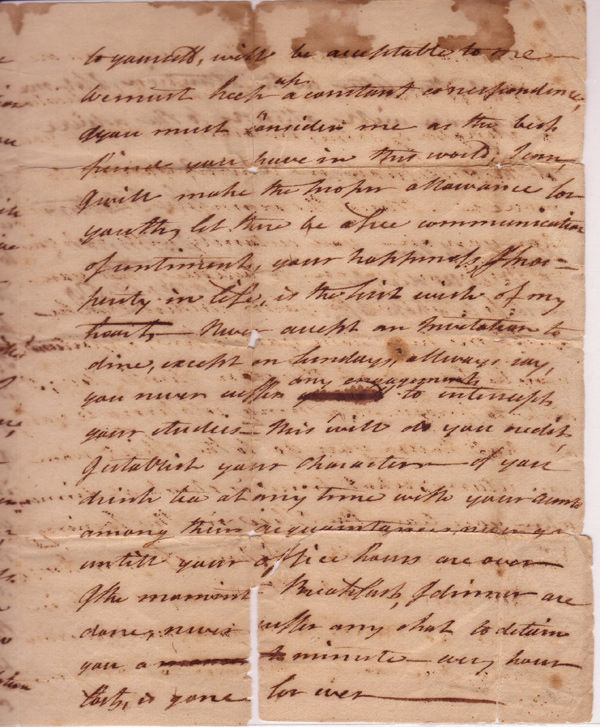 to yourself, will be acceptable to me
we must keep up a constant correspondence,
& you must consider me as the best
friend you have in this world, I can,
& will make the proper allowance for
youth, let there be a free communication
of sentiment, your happiness, & pros=
perity in life, is the first wish of my
heart, Never accept an Invitation to
dine, except on Sundays, allways say,
you never suffer any engagements to interrupt
your studies this will do you credit,
& establish your character if you
drink tea at any time with your aunts
among their acquaintances, never go
untill your office hours are over
& the moment Breakfast, & dinner are
done, never suffer any chat to detain
you a minute every hour
lost, is gone for ever